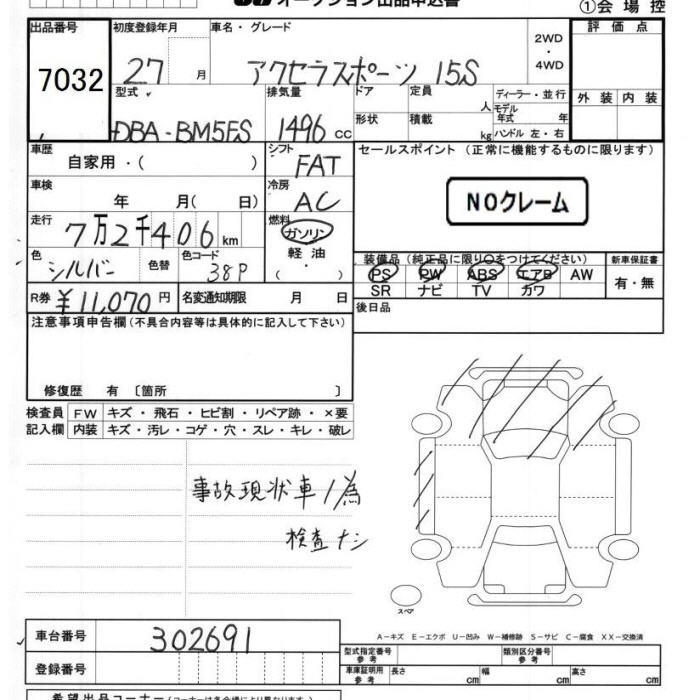 オークション出品申込書 ①会場控
出品番号 初度登録年月 車名・グレード 2WD・4WD 評価点
7032 27 月 アクセラスポーツ 15S
型式 排気量 ドア 定員 人 ディーラー・並行 外装 内装
DBA-BM5FS 1496 cc 形状 積載 kg モデル年式 年 ハンドル 左・右
車歴 シフト セールスポイント (正常に機能するものに限ります)
自家用・( ) FAT
車検 冷房 NOクレーム
年 月( 日) AC
走行 燃料
7万2千406 km ガソリン
色 色替 色コード 軽油 装備品 (純正品に限り○をつけてください) 新車保証書
シルバー 38P ・( ) PS PW ABS エアB AW 有・無
R券 ¥11,070 円 名変通知期限 月 日 SR ナビ TV カワ
注意事項申告欄(不具合内容等は具体的に記入して下さい) 後日品
修復歴 有 〔箇所 〕
検査員 FW キズ・飛石・ヒビ割・リペア跡・×要
記入欄 内装 キズ・汚レ・コゲ・穴・スレ・キレ・破レ
事故現状車ノ為
検査ナシ
スペア
A-キズ E-エクボ U-凹み W-補修跡 S-サビ C-腐食 XX-交換済
車台番号 302691 型式指定番号 参考 類別区分番号 参考
登録番号 車庫証明用 参考 長さ cm 幅 cm 高さ cm
希望出品コーナー(コーナーは各会場により異なります)